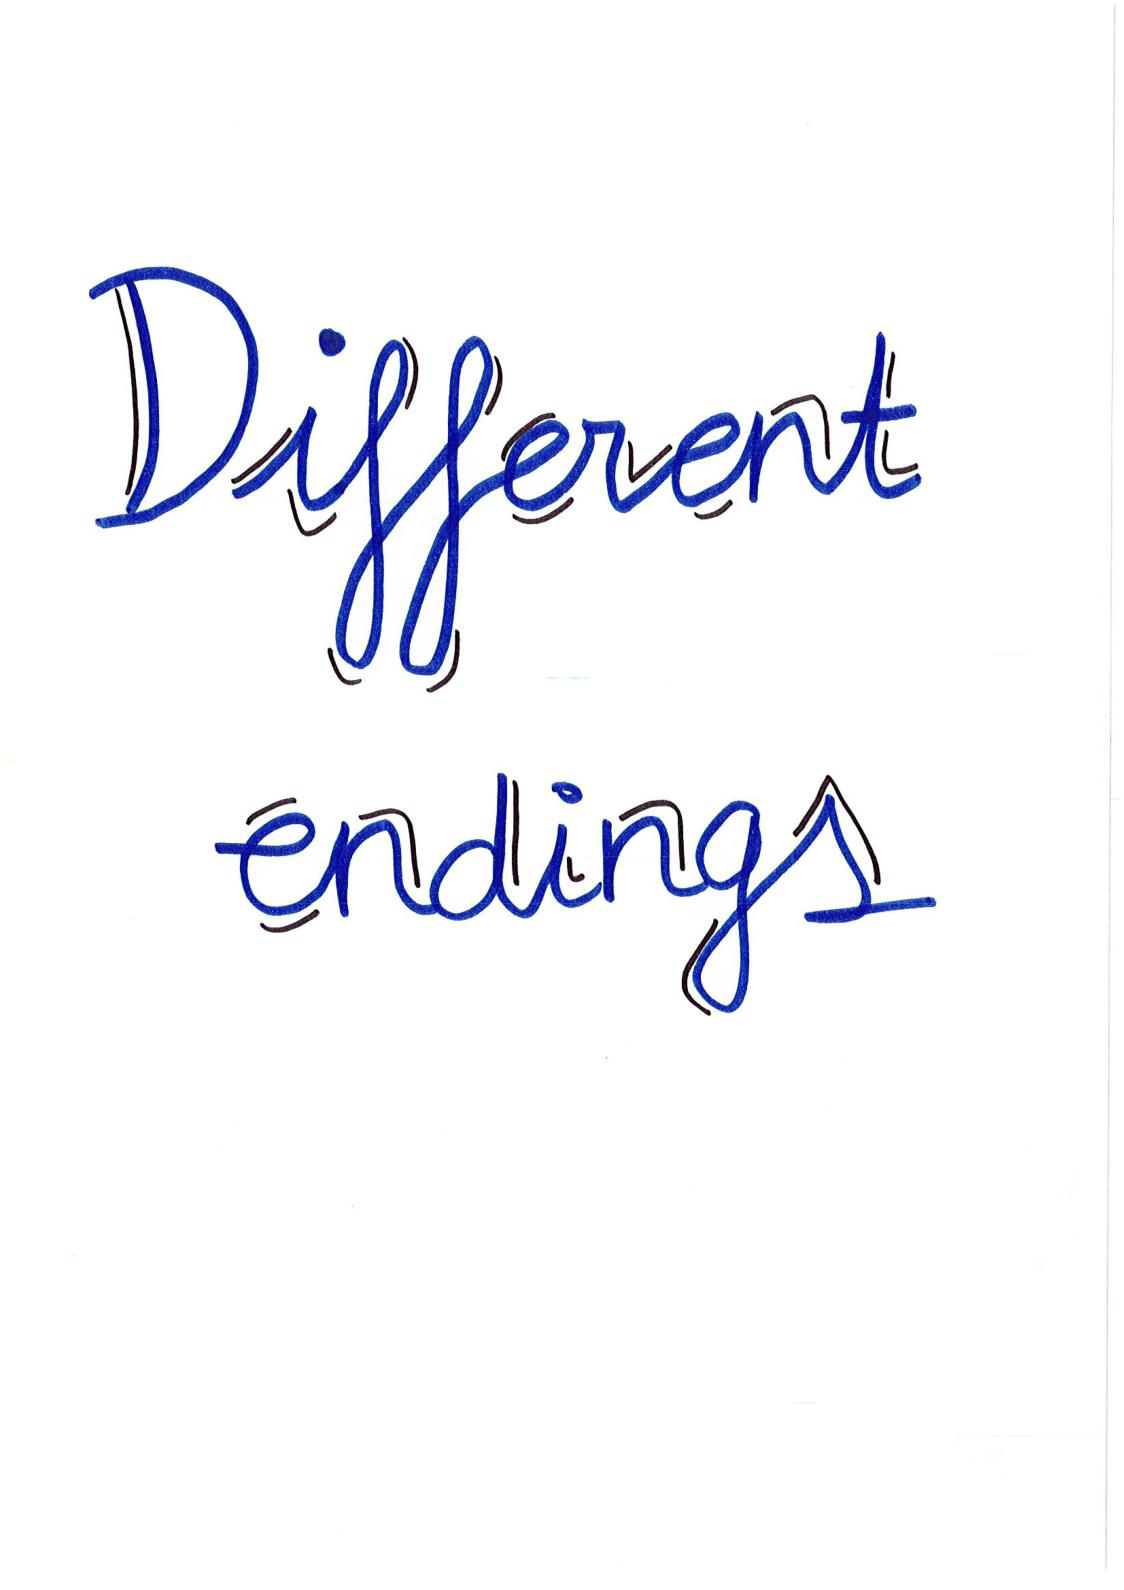 Different
endings